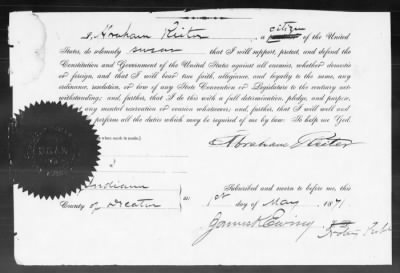 I, Abraham Rieter a citizen of the United
States, do solemnly swear that I will support, protect, and defend the
Constitution and Government of the United States against all enemies, whether domestic
or foreign, and that I will bear true faith, allegiance, and loyalty to the same, any
ordinance, resolution, or law of any State Convention or Legislature to the contrary not-
withstanding; and, further, that I do this with a full determination, pledge, and purpose,
any mental reservation or evasion whatsoever; and, further, that I will well and
perform all the duties which may be required of me by law: So help me God.
Abraham Rieter
SEAL
Indiana
County of Decatur ss:
Subscribed and sworn to before me, this
1st day of May 187
James K Ewing
Notary Public